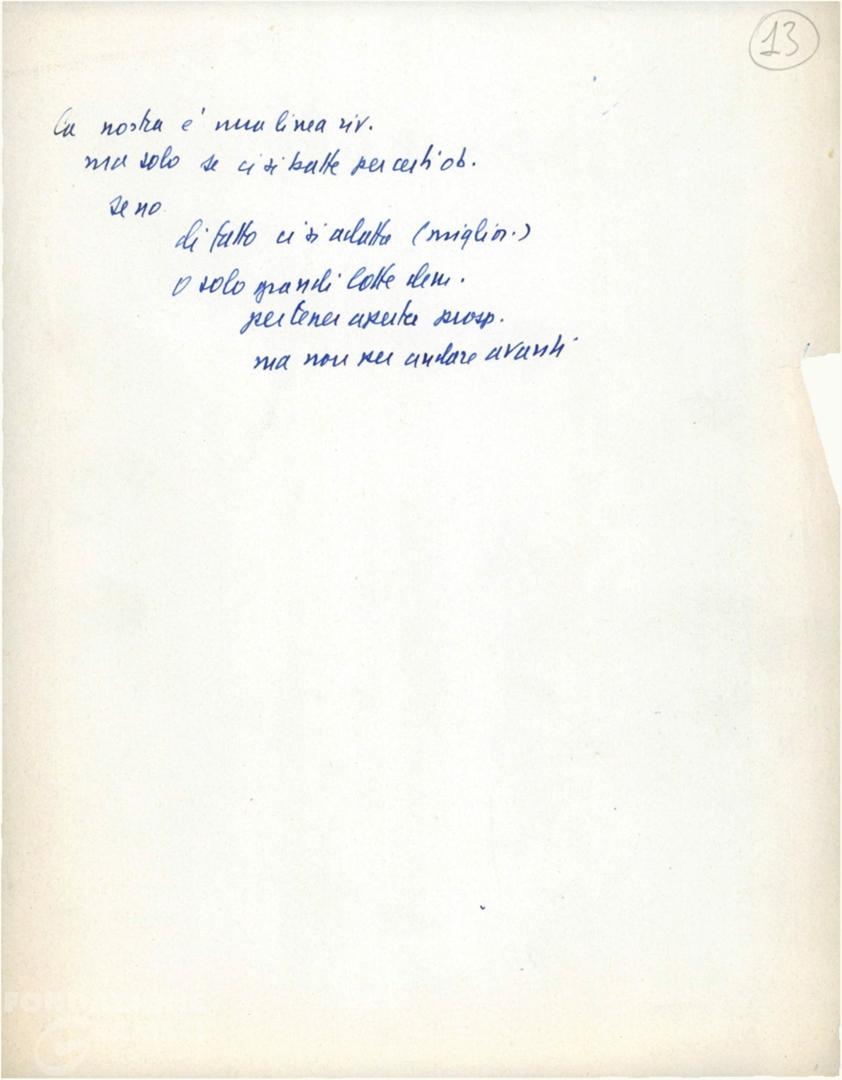 13
la nostra e' una linea riv.
ma solo se ci si batte per certi ob.
se no
di fatto ci si adatta (miglior.)
o solo grandi lotte dem.
per tener aperta prosp.
ma non per andare avanti
FONDAZIONE